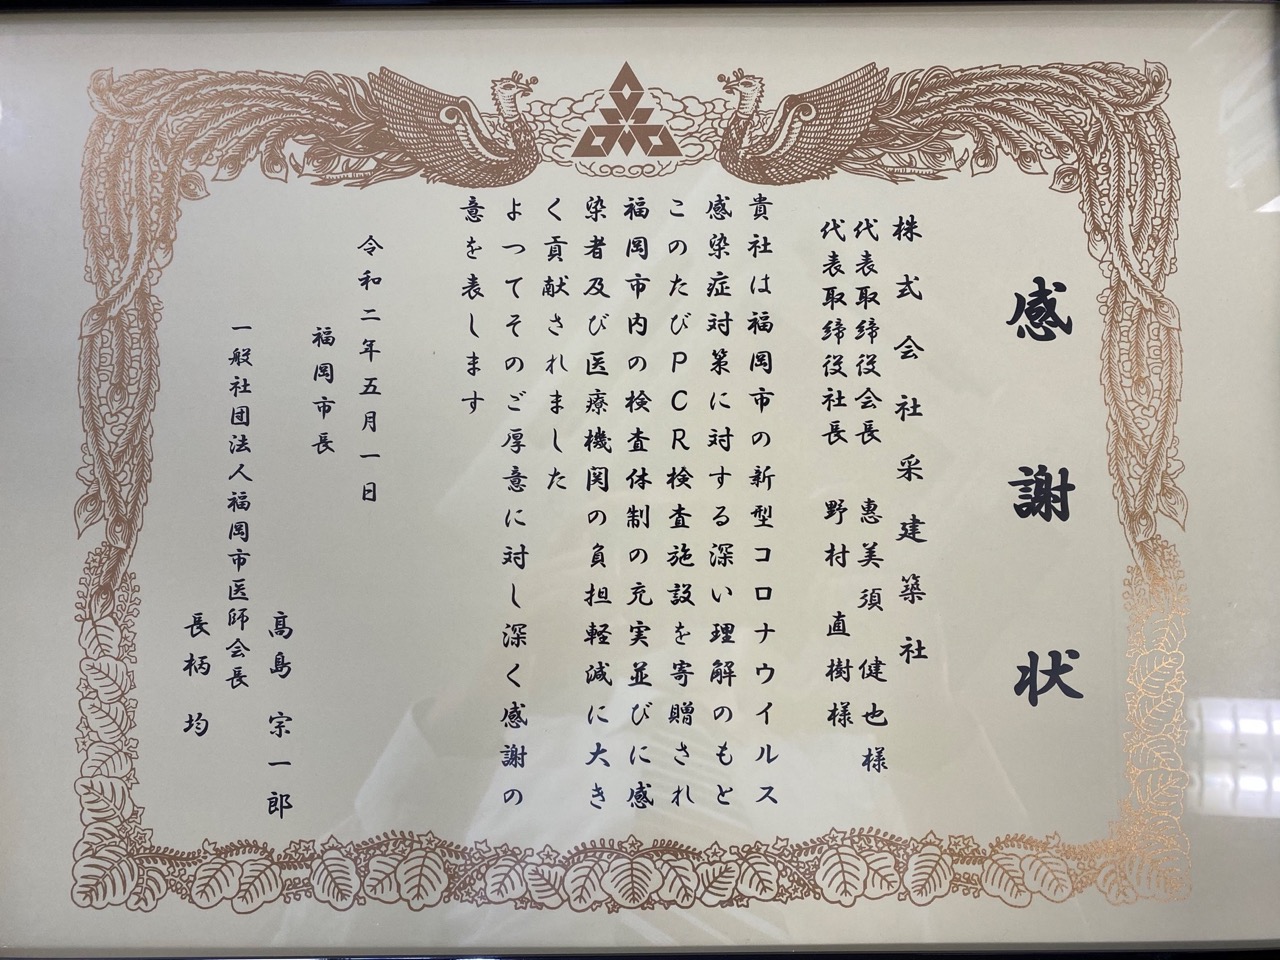 感謝状
株式会社采建築社
代表取締役会長 惠美須 健也 様
代表取締役社長 野村 直樹 様
貴社は福岡市の新型コロナウイルス
感染症対策に対する深い理解のもと
このたびPCR検査施設を寄贈され
福岡市内の検査体制の充実並びに感
染者及び医療機関の負担軽減に大き
く貢献されました
よつてそのご厚意に対し深く感謝の
意を表します
令和二年五月一日
福岡市長
高島 宗一郎
一般社団法人福岡市医師会長
長柄 均